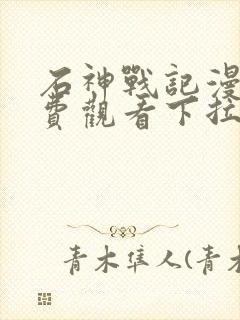 石神戰記漫
費觀看下拉
青木隼人(青木